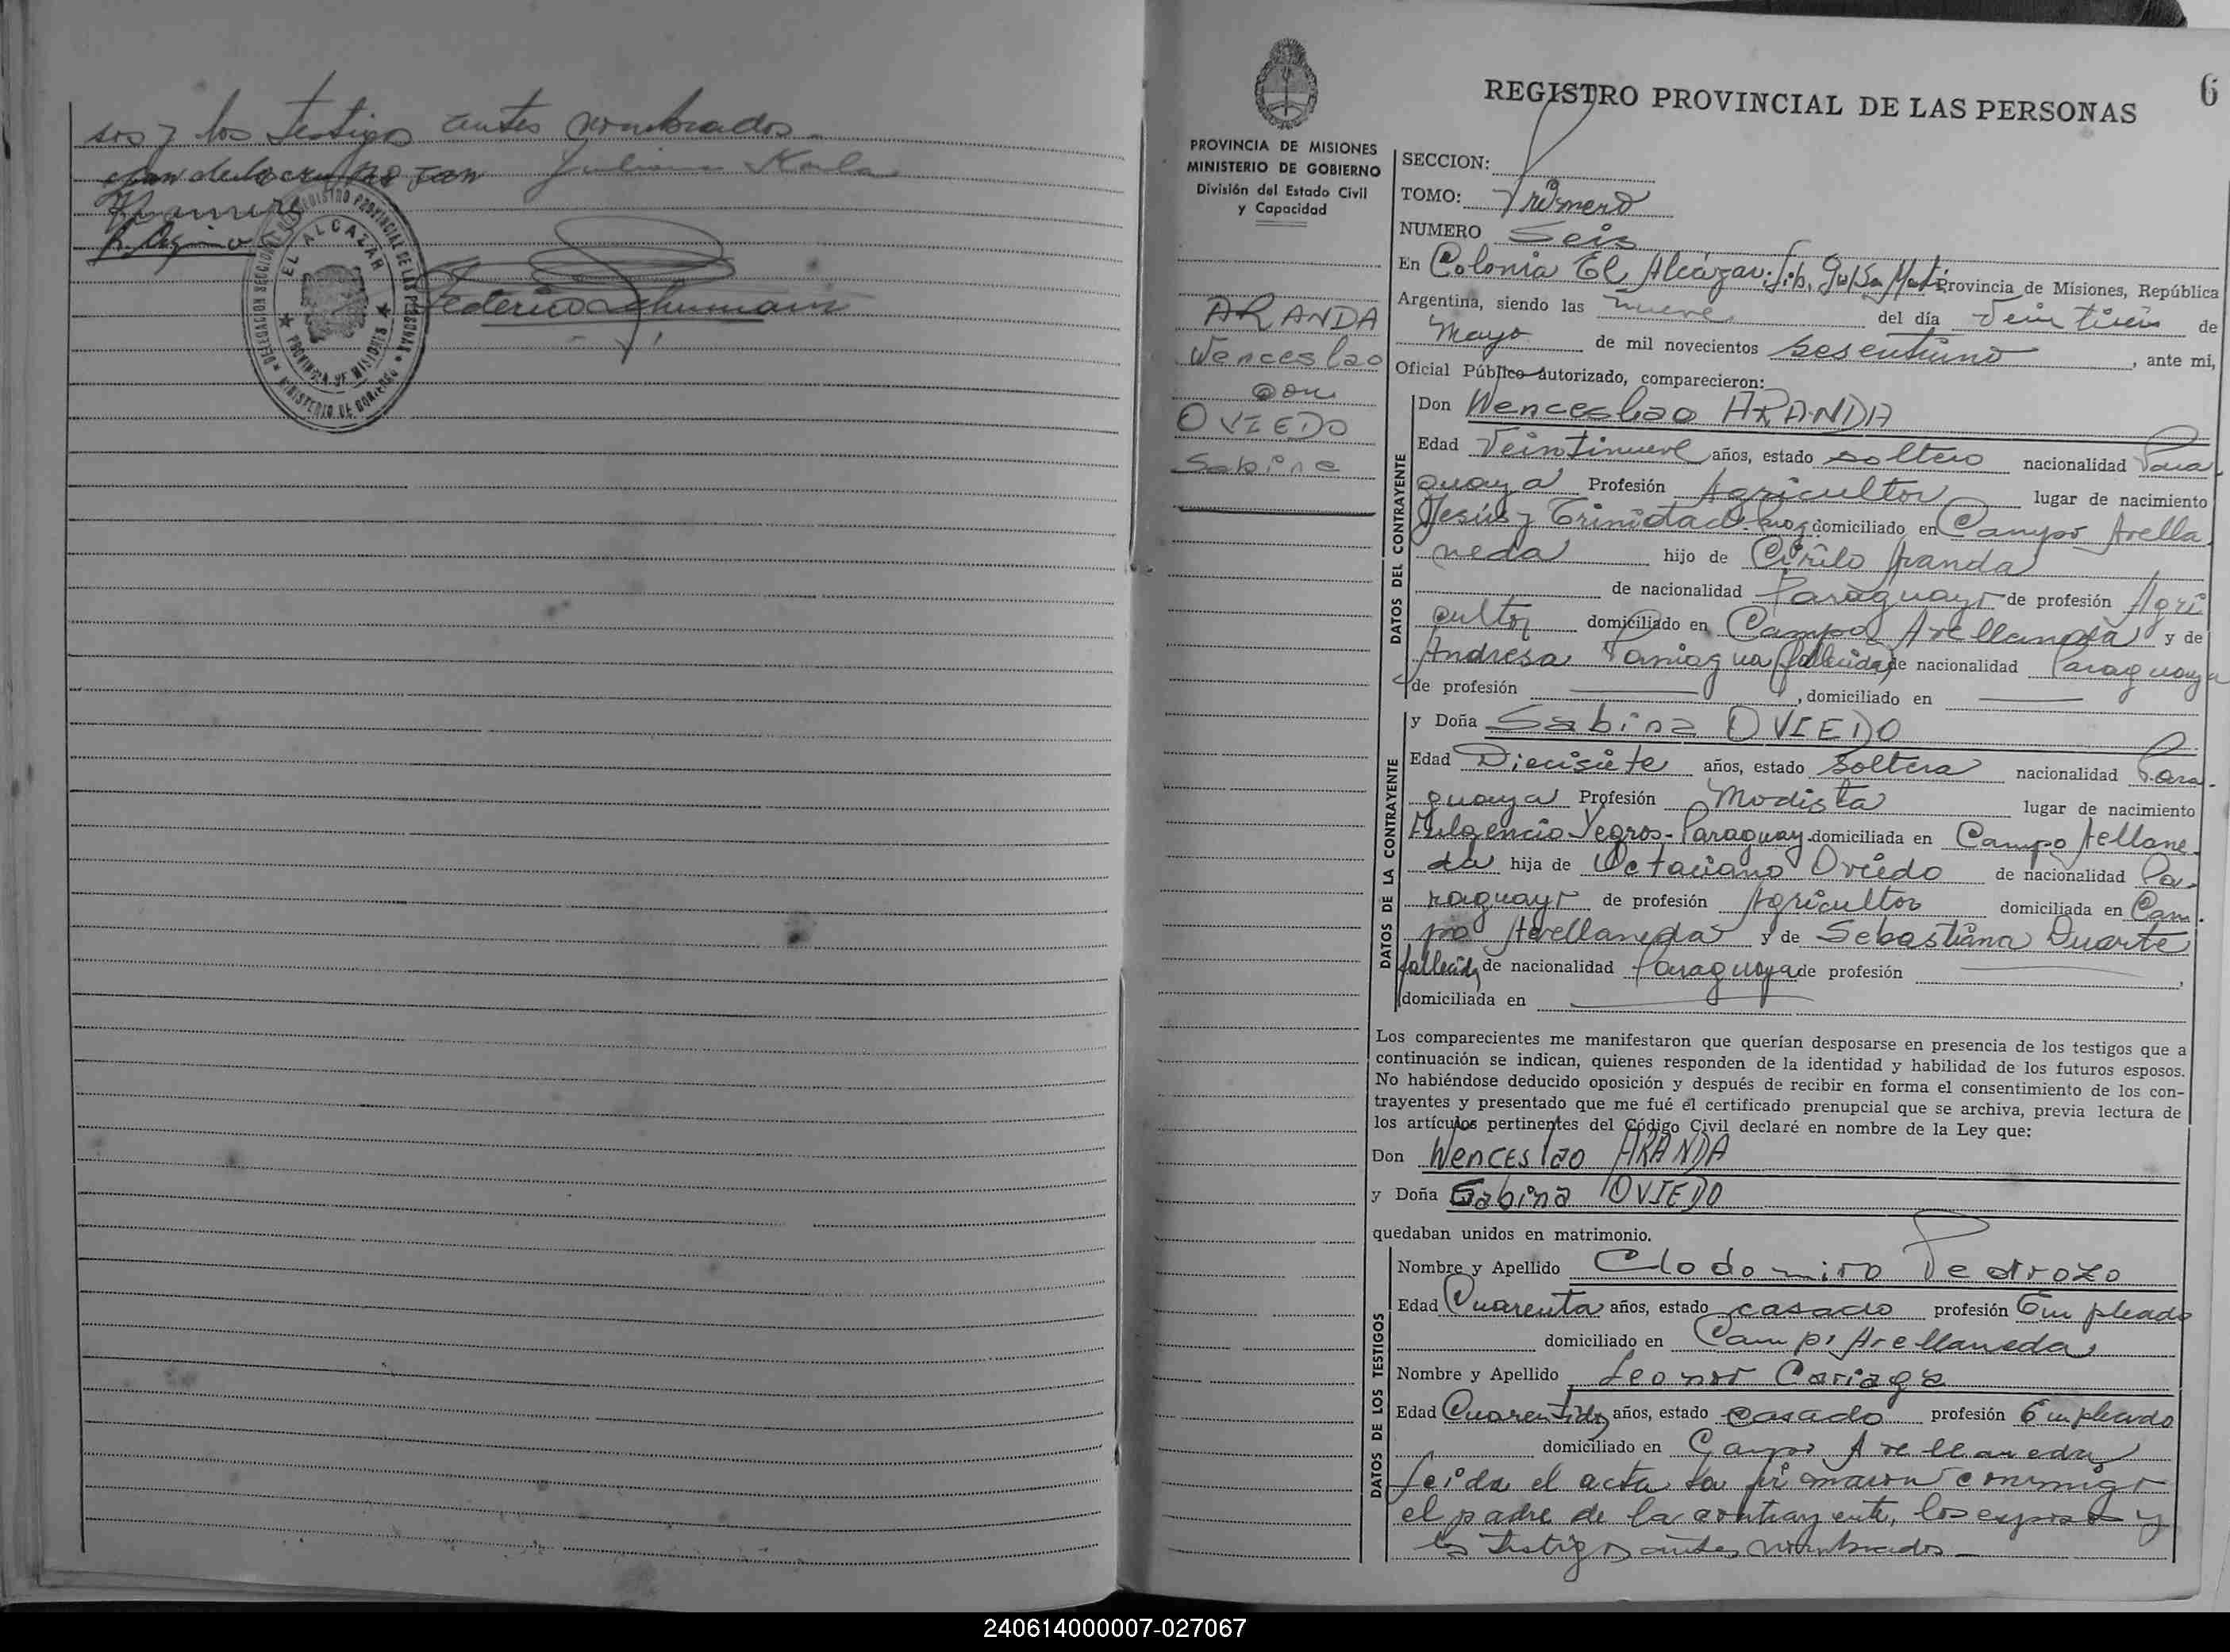 sos y los testigos antes nombrados.
Juliana
Federico Schumann
REGISTRO PROVINCIAL DE LAS PERSONAS
DELEGACION SECCION
EL ALCAZAR
PROVINCIA DE MISIONES
MINISTERIO DE GOBIERNO
6
REGISTRO PROVINCIAL DE LAS PERSONAS
PROVINCIA DE MISIONES
MINISTERIO DE GOBIERNO
División del Estado Civil
y Capacidad
ARANDA
Wenceslao
con
OVIEDO
Sabina
SECCION:
TOMO: Primero
NUMERO Seis
En Colonia El Alcázar. Lib. Gral San Martín Provincia de Misiones, República
Argentina, siendo las nueve del día de
Mayo de mil novecientos sesentiuno, ante mi,
Oficial Público autorizado, comparecieron:
DATOS DEL CONTRAYENTE
Don Wenceslao ARANDA
Edad Veintinueve años, estado soltero nacionalidad Para
guaya Profesión Agricultor lugar de nacimiento
Jesús y Trinidad domiciliado en Campo Avella
neda hijo de Cirilo Aranda
de nacionalidad Paraguayo de profesión Agri
cultor domiciliado en Campo Avellaneda y de
Andresa Paniagua (fallecida) de nacionalidad Paraguaya
de profesión , domiciliado en
DATOS DE LA CONTRAYENTE
y Doña Sabina OVIEDO
Edad Diecisiete años, estado Soltera nacionalidad Para-
guaya Profesión Modista lugar de nacimiento
Fulgencio Yegros-Paraguay domiciliada en Campo Avellane-
da hija de Octaviano Oviedo de nacionalidad Pa-
raguayo de profesión Agricultor domiciliada en Cam-
po Avellaneda y de Sebastiana Duarte
fallecida de nacionalidad Paraguaya de profesión ,
domiciliada en
Los comparecientes me manifestaron que querían desposarse en presencia de los testigos que a
continuación se indican, quienes responden de la identidad y habilidad de los futuros esposos.
No habiéndose deducido oposición y después de recibir en forma el consentimiento de los con-
trayentes y presentado que me fué el certificado prenupcial que se archiva, previa lectura de
los artículos pertinentes del Código Civil declaré en nombre de la Ley que:
Don Wenceslao ARANDA
y Doña Sabina OVIEDO
quedaban unidos en matrimonio.
DATOS DE LOS TESTIGOS
Nombre y Apellido Clodomiro Pedrozo
Edad Cuarenta años, estado casado profesión Empleado
domiciliado en Campo Avellaneda
Nombre y Apellido Leonor Cariaga
Edad Cuarentidos años, estado casado profesión Empleado
domiciliado en Campo Avellaneda
Leida el acta la firmaron conmigo
el padre de la contrayente, los esposos y
los testigos antes nombrados
240614000007-027067